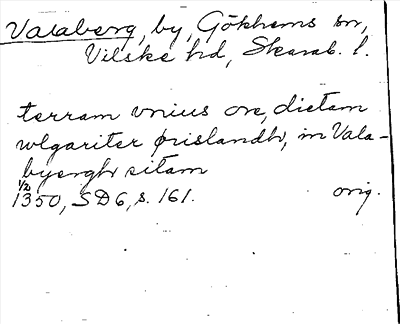 Valaberg, by, Gökhems sn,
Vilske hd, Skarab. l.
terram vnius ore, dictam
wlgariter ørislandh, in Vala-
byergh sitam
1/2 1350, SD6, s. 161. orig.